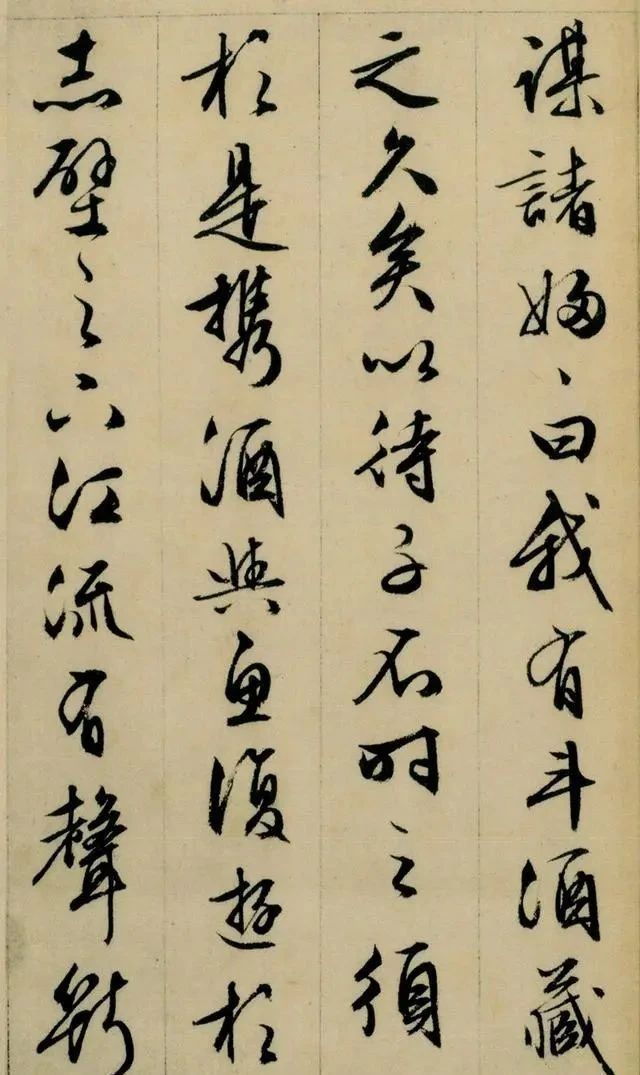 謀諸婦々曰我有斗酒藏
之久矣以待子不時之須
於是携酒與魚復遊於
赤壁之下江流有聲斷